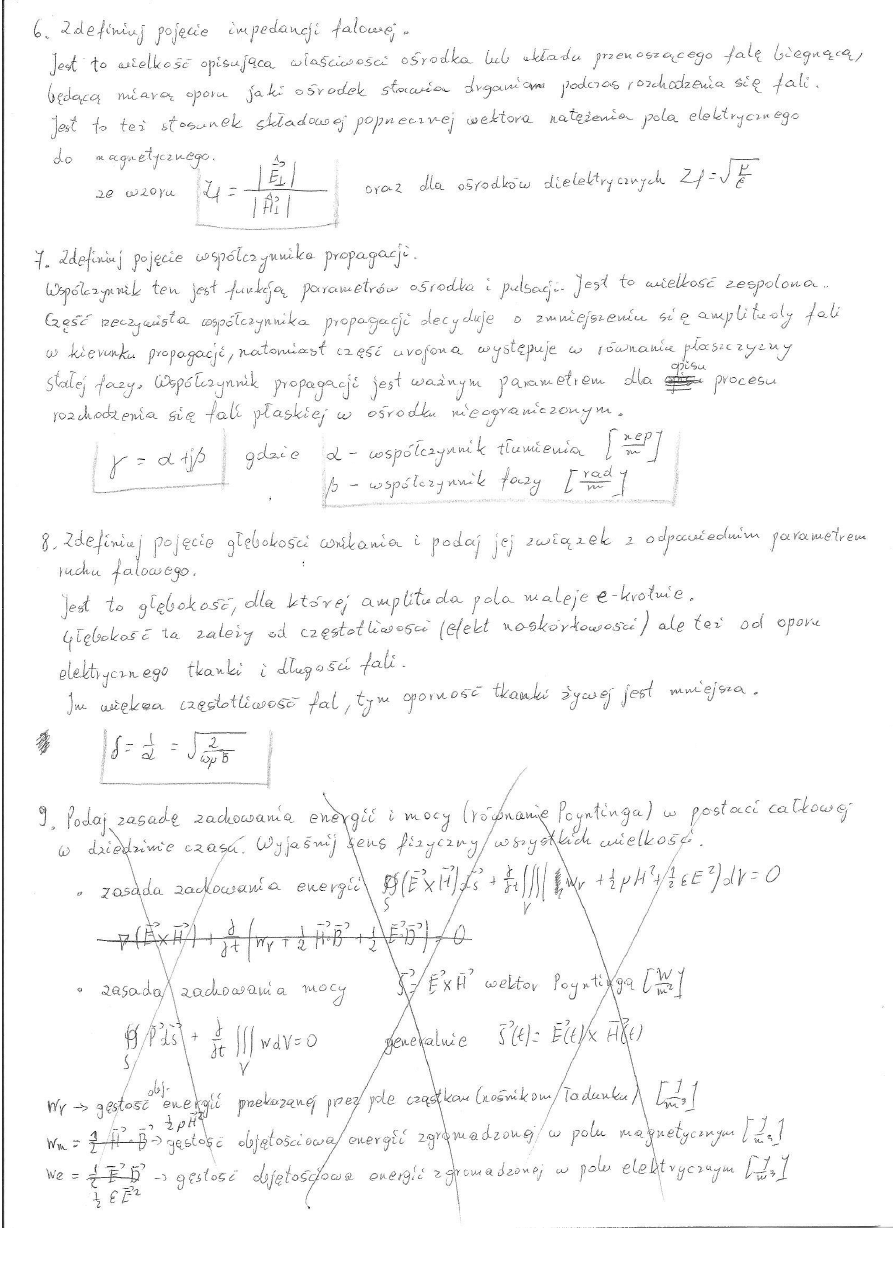 6. Zdefiniuj pojęcie impedancji falowej.
Jest to wielkość opisująca właściwości ośrodka lub układu przenoszącego falę biegnącą,
będącą miarą oporu jaki ośrodek stawia drganiom podczas rozchodzenia się fali.
Jest to też stosunek składowej poprzecznej wektora natężenia pola elektrycznego
do magnetycznego.
ze wzoru Zf = |E⊥| / |H⊥| oraz dla ośrodków dielektrycznych Zf = √(μ/ε)
7. Zdefiniuj pojęcie współczynnika propagacji.
Współczynnik ten jest funkcją parametrów ośrodka i pulsacji. Jest to wielkość zespolona.
Część rzeczywista współczynnika propagacji decyduje o zmniejszeniu się amplitudy fali
w kierunku propagacji, natomiast część urojona występuje w równaniu płaszczyzny
stałej fazy. Współczynnik propagacji jest ważnym parametrem dla opisu procesu
rozchodzenia się fali płaskiej w ośrodku nieograniczonym.
γ = α + jβ gdzie α - współczynnik tłumienia [nep/m]
β - współczynnik fazy [rad/m]
8. Zdefiniuj pojęcie głębokości wnikania i podaj jej związek z odpowiednim parametrem
ruchu falowego.
Jest to głębokość, dla której amplituda pola maleje e-krotnie.
Głębokość ta zależy od częstotliwości (efekt naskórkowości) ale też od oporu
elektrycznego tkanki i długości fali.
Im większa częstotliwość fal, tym oporność tkanki żywej jest mniejsza.
δ = 1/α = √(2/ωμσ)
9. Podaj zasadę zachowania energii i mocy (równanie Poyntinga) w postaci całkowej
w dziedzinie czasu. Wyjaśnij sens fizyczny wszystkich wielkości.
• zasada zachowania energii ∯S (E⃗×H⃗)ds⃗ + ∂/∂t ∭V (wv + ½μH² + ½εE²)dV = 0
∇(E⃗×H⃗) + ∂/∂t (wv + ½ H⃗·B⃗ + ½ E⃗·D⃗) = 0
• zasada zachowania mocy S⃗ = E⃗×H⃗ wektor Poyntinga [W/m²]
∯S P⃗ds⃗ + ∂/∂t ∭V w dV = 0 generalnie S⃗(t) = E⃗(t) × H⃗(t)
wv → gęstość obj. energii przekazanej przez pole cząstkom (nośnikom ładunku) [J/m³]
wm = ½ H⃗·B⃗ ½μH² → gęstość objętościowa energii zgromadzonej w polu magnetycznym [J/m³]
we = ½ E⃗·D⃗ ½εE² → gęstość objętościowa energii zgromadzonej w polu elektrycznym [J/m³]